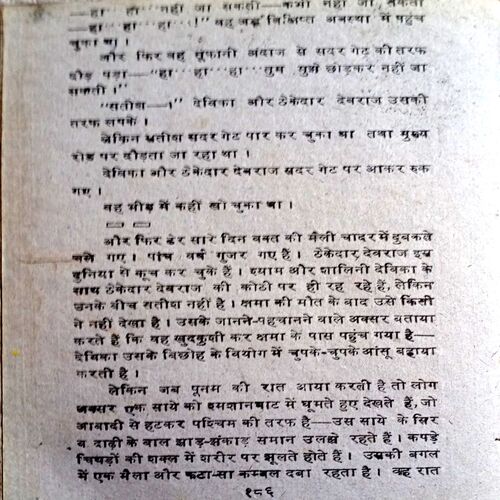 —हा" "हा" "नहीं जा सकती—कभी नहीं जा, सकती
—हा" "हा" "हा" "!" वह अब विक्षिप्त अवस्था में पहुंच
चुका था।
और फिर वह तूफानी अंदाज से सदर गेट की तरफ
दौड़ पड़ा—"हा" "हा" "हा" "तुम मुझे छोड़कर नहीं जा
सकती।"
"सतीश—।" देविका और ठेकेदार देवराज उसकी
तरफ लपके।
लेकिन सतीश सदर गेट पार कर चुका था तथा मुख्य
रोड पर दौड़ता जा रहा था।
देविका और ठेकेदार देवराज सदर गेट पर आकर रुक
गए।
वह भीड़ में कहीं खो चुका था।
और फिर ढेर सारे दिन वक्त की मैली चादर में दुबकते
चले गए। पांच वर्ष गुजर गए हैं। ठेकेदार देवराज इस
दुनिया से कूच कर चुके हैं। श्याम और शालिनी देविका के
साथ ठेकेदार देवराज की कोठी पर ही रह रहे हैं, लेकिन
उनके बीच सतीश नहीं है। क्षमा की मौत के बाद उसे किसी
ने नहीं देखा है। उसके जानने-पहचानने वाले अक्सर बताया
करते हैं कि वह खुदकुशी कर क्षमा के पास पहुंच गया है—
देविका उसके बिछोह के वियोग में चुपके-चुपके आंसू बहाया
करती है।
लेकिन जब पूनम की रात आया करती है तो लोग
अक्सर एक साये को श्मशानघाट में घूमते हुए देखते हैं, जो
आबादी से हटकर पश्चिम की तरफ है—उस साये के सिर
व दाढ़ी के बाल झाड़-झंकाड़ समान उलझे रहते हैं। कपड़े
चिथड़ों की शक्ल में शरीर पर झूलते होते हैं। उसकी बगल
में एक मैला और फटा-सा कम्बल दबा रहता है। वह रात
१८६